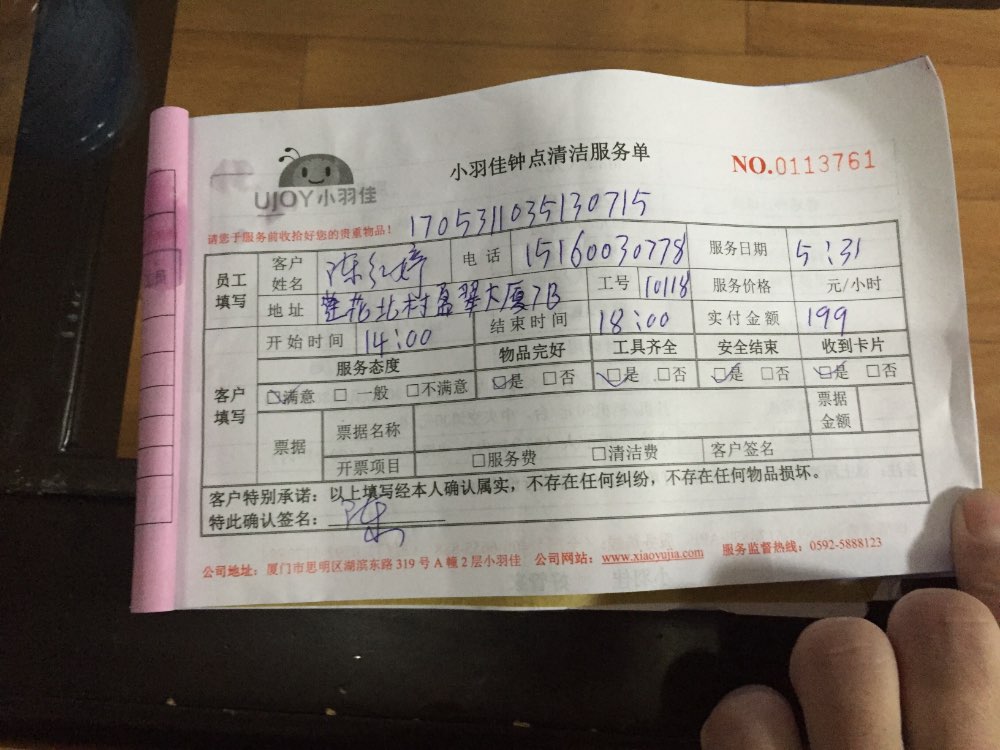 小羽佳钟点清洁服务单
NO.0113761
UJOY小羽佳
请您于服务前收拾好您的贵重物品!
1705311035130715
员工填写 客户姓名 陈红婷 电话 15160030778 服务日期 5:31
地址 莲花北村盈翠大厦7B 工号 10118 服务价格 元/小时
开始时间 14:00 结束时间 18:00 实付金额 199
客户填写 服务态度 物品完好 工具齐全 安全结束 收到卡片
☑满意 □一般 □不满意 ☑是 □否 ☑是 □否 ☑是 □否 ☑是 □否
票据 票据名称 票据金额
开票项目 □服务费 □清洁费 客户签名
客户特别承诺:以上填写经本人确认属实,不存在任何纠纷,不存在任何物品损坏。
特此确认签名:陈
公司地址:厦门市思明区湖滨东路319号A幢2层小羽佳 公司网站:www.xiaoyujia.com 服务监督热线:0592-5888123